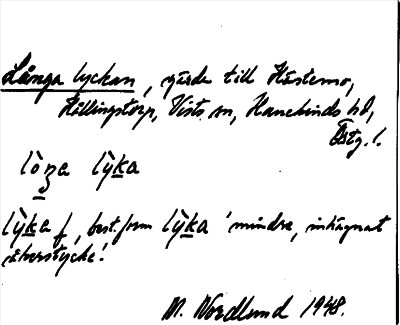 Långa lyckan, gärde till Hästemo,
Hällingstorp, Vists sn, Hanekinds hd,
Östg.l.
lòŋa lỳka
lỳka f, best. form lỳka 'mindre, inhägnat
åkerstycke'.
M. Nordlund 1948.